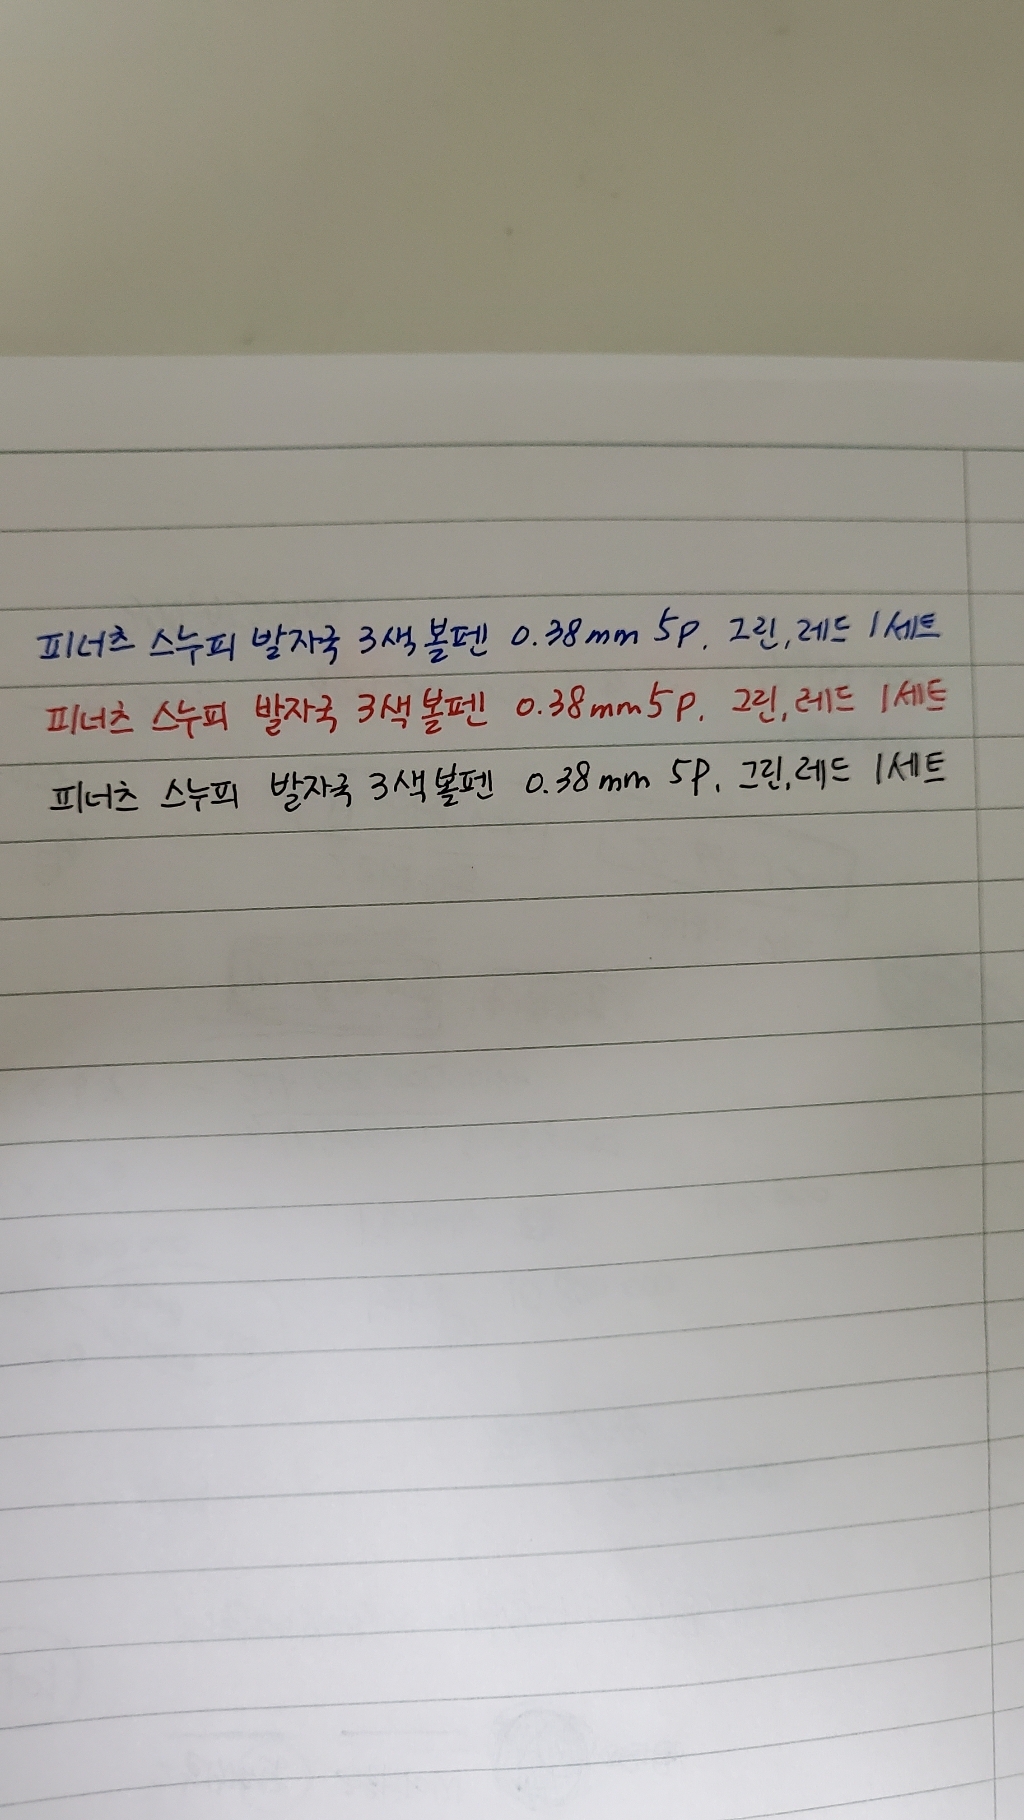 피너츠 스누피 발자국 3색볼펜 0.38mm 5P. 그린,레드 1세트
피너츠 스누피 발자국 3색볼펜 0.38mm 5P. 그린,레드 1세트
피너츠 스누피 발자국 3색볼펜 0.38mm 5P. 그린,레드 1세트